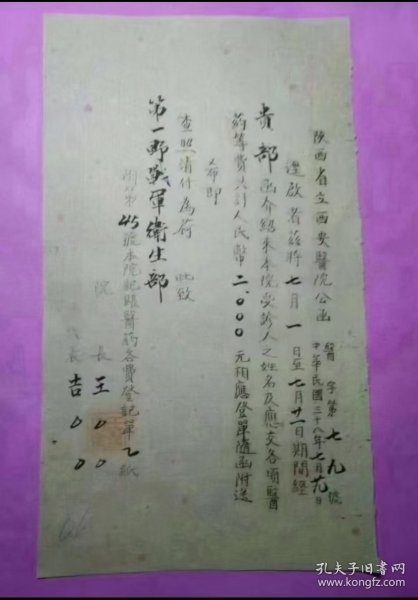 陝西省立西安醫院公函
醫字第七九號
中華民國三十八年七月廿九日
逕啟者茲將七月一日至七月廿一日期間經
貴部函介紹來本院受診人之姓名及應交各項醫
葯等費共計人民幣二.000元相應登單隨函附送
希即
查照清付為荷 此致
第一野戰軍衛生部
附第45號本院記賬醫葯各費登記單乙紙
院長王00
長吉00
孔夫子旧书网
www.kongfz.com